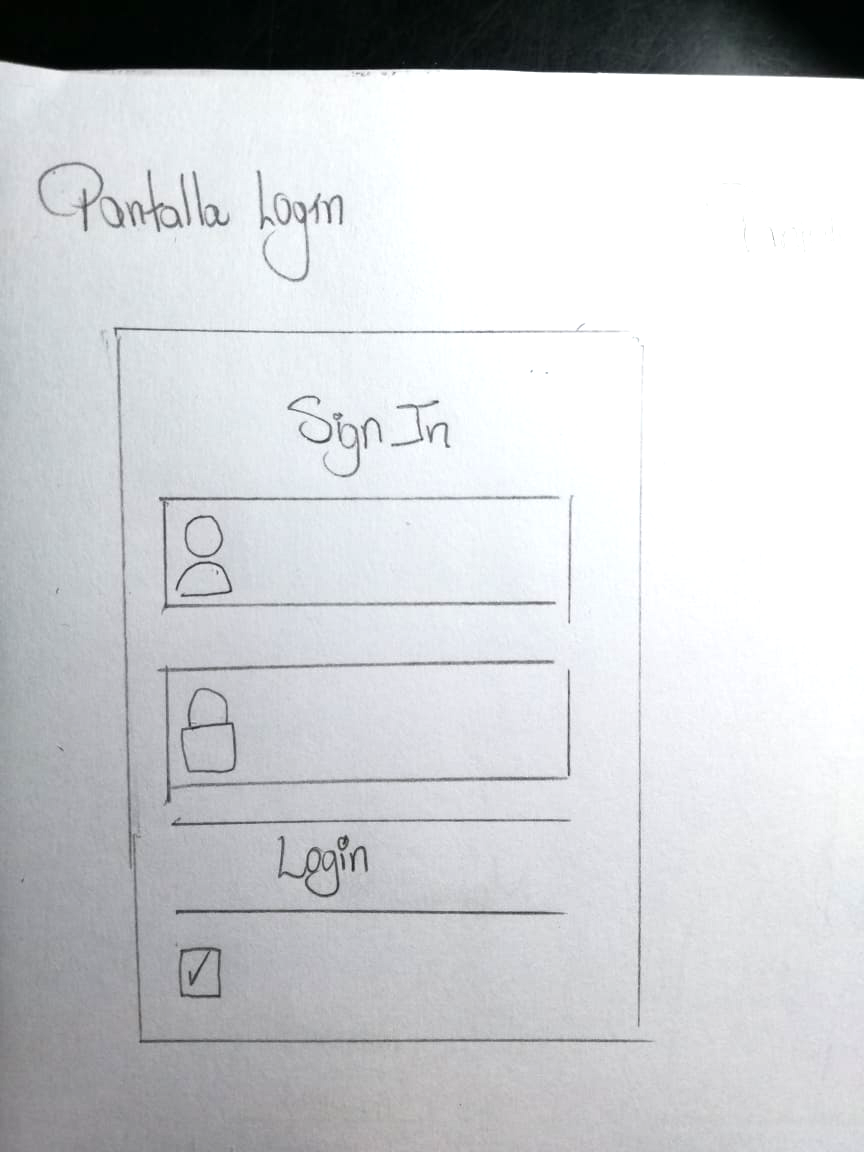 Pantalla Login
Sign In
Login